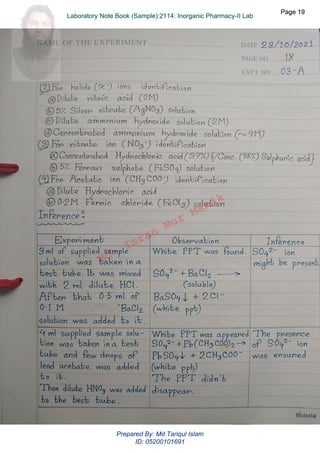 Laboratory Note Book (Sample):2114: Inorganic Pharmacy-II Lab
Page 19
NAME OF THE EXPERIMENT
DATE 28/10/2021
PAGE NO 18
EXPT. NO 03-A
② For halide (X⁻) ions identification
ⓐ Dilute nitric acid (2M)
ⓑ 5% Silver nitrate (AgNO₃) solution
ⓒ Dilute ammonium hydroxide solution (2M)
ⓓ Concentrated ammonium hydroxide solution (~9M)
③ For nitrate ion (NO₃⁻) identification
ⓐ Concentrated Hydrochloric acid (37%) {/Conc. (98%) Sulphuric acid}
ⓑ 5% Ferrous sulphate (FeSO₄) solution
④ For Acetate ion (CH₃COO⁻) identification
ⓐ Dilute Hydrochloric acid
ⓑ 0.2M. Ferric chloride (FeCl₃) solution
Inference:
Experiment
Observation
Inference
3 ml of supplied sample
solution was taken in a
test tube. It was mixed
with 2 ml dilute HCl.
After that 0.5 ml of
0.1 M BaCl₂
solution was added to it.
White PPT was found.
SO₄²⁻ + BaCl₂ →
(soluble)
BaSO₄↓ + 2Cl⁻
(white ppt)
SO₄²⁻ ion
might be present
4 ml supplied sample solu-
tion was taken in a test
tube and few drops of
lead acetate was added
to it.
Then dilute HNO₃ was added
to the test tube.
White PPT was appeared
SO₄²⁻ + Pb(CH₃COO)₂ →
PbSO₄↓ + 2CH₃COO⁻
(white ppt)
The PPT didn't
disappear.
The presence
of SO₄²⁻ ion
was ensured.
Imran Nur Manik
Prepared By: Md Tariqul Islam
ID: 05200101691